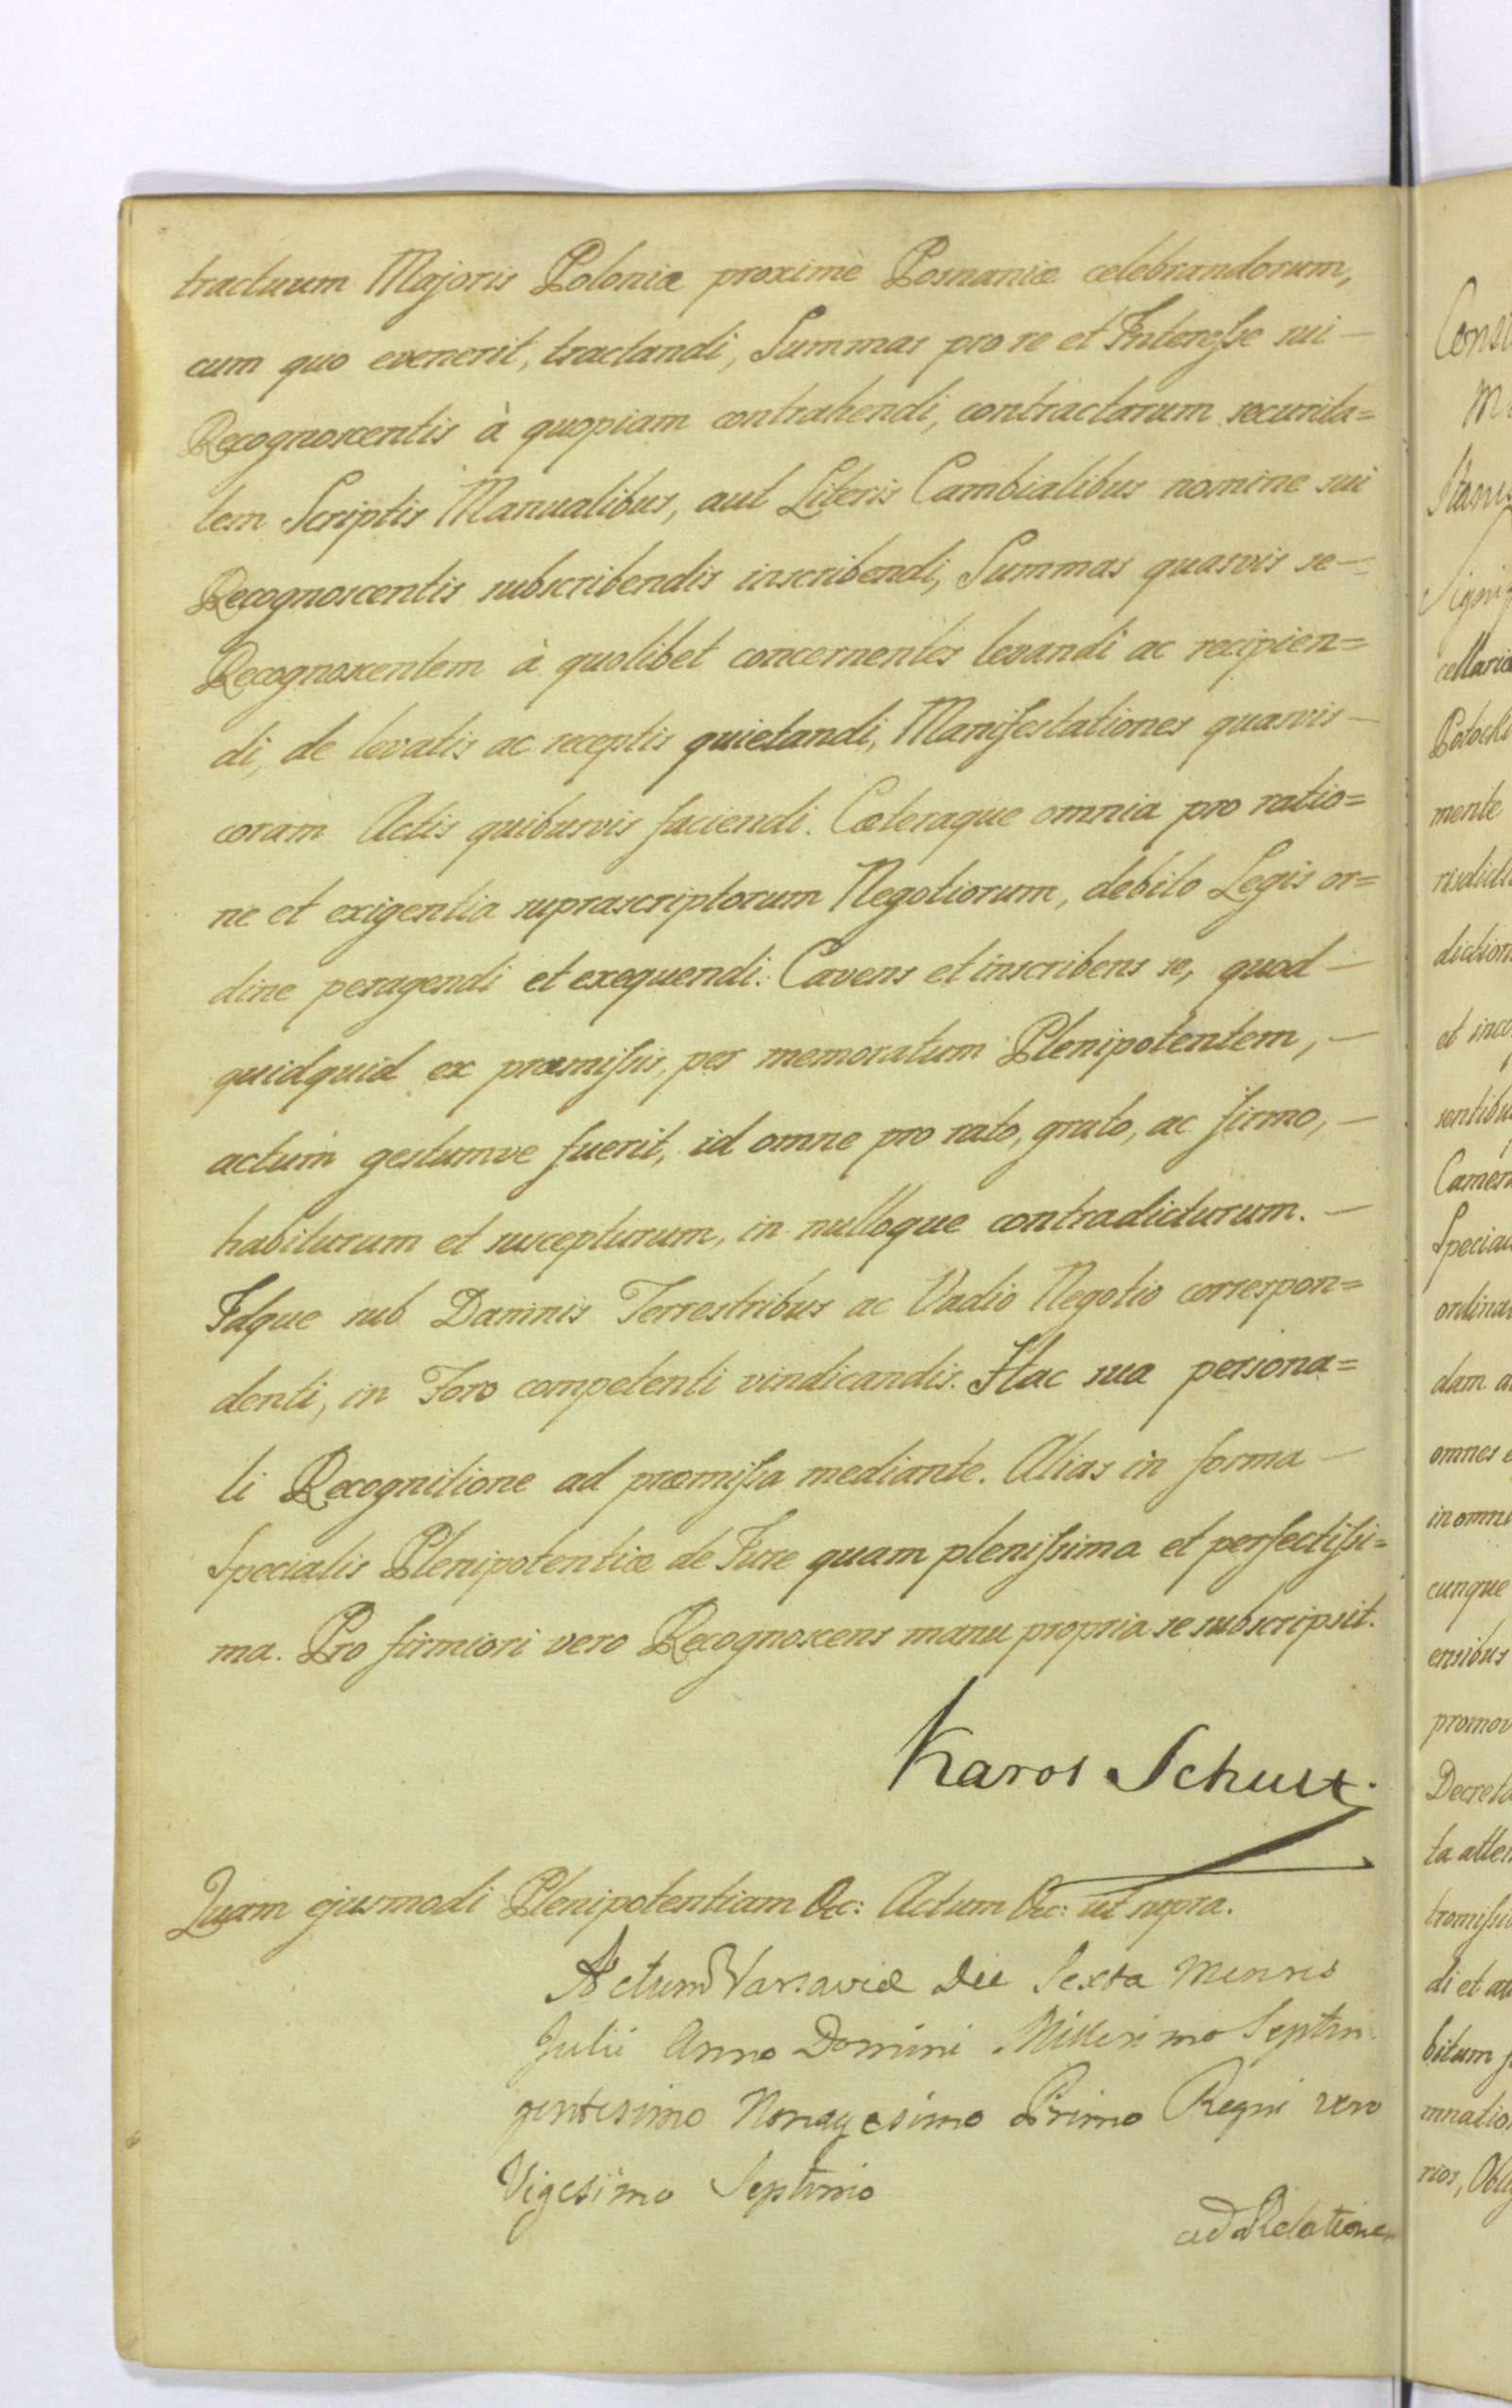 tractuum Majoris Poloniæ proximè Posnaniæ celebrandorum,
cum quo evenerit, tractandi, Summas pro re et Interesse sui —
Recognoscentis à quopiam contrahendi, contractarum securita=
tem Scriptis Manualibus, aut Literis Cambialibus nomine sui
Recognoscentis subscribendis inscribendi, Summas quasvis se=
Recognoscentem à quolibet concernentes levandi ac recipien=
di, de levatis ac receptis quietandi, Manifestationes quasvis —
coram Actis quibusvis faciendi. Cæteraque omnia pro ratio=
ne et exigentia suprascriptorum Negotiorum, debito Legis or=
dine peragendi et exequendi. Cavens et inscribens se, quod —
quidquid ex præmissis, per memoratum Plenipotentem, —
actum gestumve fuerit, id omne pro rato, grato, ac firmo, —
habiturum et suscepturum, in nulloque contradicturum. —
Idque sub Damnis Terrestribus ac Vadio Negotio correspon=
denti, in Foro competenti vindicandis. Hac sua persona=
li Recognitione ad præmissa mediante. Alias in forma —
Specialis Plenipotentiæ de Jure quam plenissima et perfectissi=
ma. Pro firmiori vero Recognoscens manu propria se subscripsit.
Karol Schultz.
Quam ejusmodi Plenipotentiam &c: Actum &c: ut supra.
Actum Varsaviæ Die Sexta Mensis
Julii Anno Domini Millesimo Septin
gentesimo Nonagesimo Primo Regni vero
Vigesimo Septimo
ad Relationem
Consi
M
Stanis
Signif
cellariæ
Potocki
mente
risdicti
diction
et inco
sentibus
Camera
Specia
ordinar
dam a
omnes e
in omni
cunque
ensibus
promov
Decreto
ta atten
tromissi
di et a
bitum
mnatio
rios, Obli